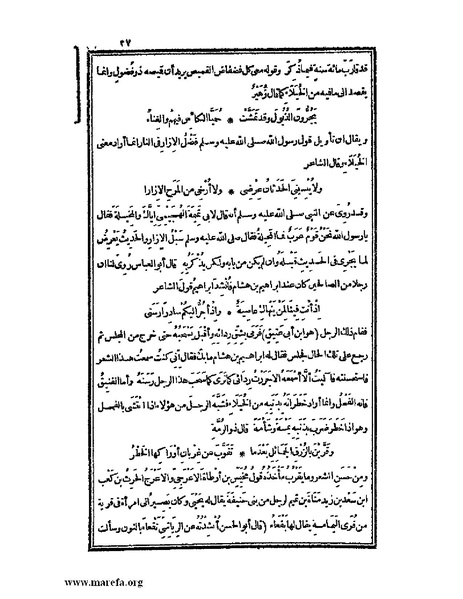 ٢٧
قد قارب مائة سنة فيما ذكر وقوله معى كل فضفاض القميص يريد أن قميصه ذو فضول وانما
يقصد الى ما فيه من الخيلاء كما قال زهير
يجرون الذيول وقد تمشت * حميا الكأس فيهم والغناء
ويقال ان تأويل قول رسول الله صلى الله عليه وسلم فضل الازار فى النار انما أراد معنى
الخيلاء وقال الشاعر
ولا ينسينى الحدثان عرضى * ولا أرخى من المرح الازارا
وقد روى عن النبى صلى الله عليه وسلم أنه قال لابى تميمة الهجيمى اياك والمخيلة فقال
يا رسول الله نحن قوم عرب فما المخيلة فقال صلى الله عليه وسلم سبل الازار والحديث يعرض
لما يجرى فى الحديث قبله وان لم يكن من بابه ولكن يذكر به قال أبو العباس روى لنا ان
رجلا من الصالحين كان عند ابراهيم بن هشام فأنشد ابراهيم قول الشاعر
اذ أنت فينا لمن ينهاك عاصية * واذ أجر اليكم سادرا رسنى
فقام ذلك الرجل (هو ابن أبى عتيق) فرمى بشق ردائه وأقبل يسحبه حتى خرج من المجلس ثم
رجع على تلك الحال فجلس فقال له ابراهيم بن هشام ما بك فقال انى كنت سمعت هذا الشعر
فاستحسنته فآليت ألا أسمعه الا جررت ردائى كما ترى كما سحب هذا الرجل رسنه وأما الفنيق
فانه الفحل وانما أراد خطرانه بذنبه من الخيلاء فشبه الرجل من هؤلاء اذا اختال بالفحل
وهو اذا خطر ضرب بذنبه يمنة وشأمة قال ذو الرمة
وقربن بالزرق الجمائل بعدما * تقوب عن غربان أوراكها الخطر
ومن حسن الشعر وما يقرب مأخذه قول مخيس بن أرطاة الاعرجى والاعرج الحرث بن كعب
ابن سعد بن زيد مناة بن تميم لرجل من بنى حنيفة يقال له يحيى وكان يصير الى امرأة فى قرية
من قرى اليمامة يقال لها بقعاء (قال أبو الحسن أنشدنه عن الرياشى نقعاء بالنون وسألت
www.marefa.org